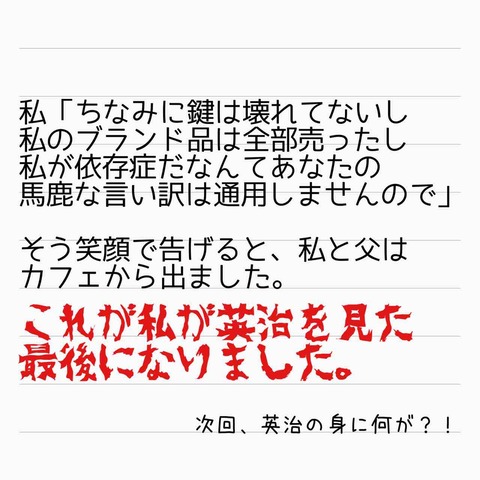 私「ちなみに鍵は壊れてないし
私のブランド品は全部売ったし
私が依存症だなんてあなたの
馬鹿な言い訳は通用しませんので」
そう笑顔で告げると、私と父は
カフェから出ました。
これが私が英治を見た
最後になりました。
次回、英治の身に何が？！